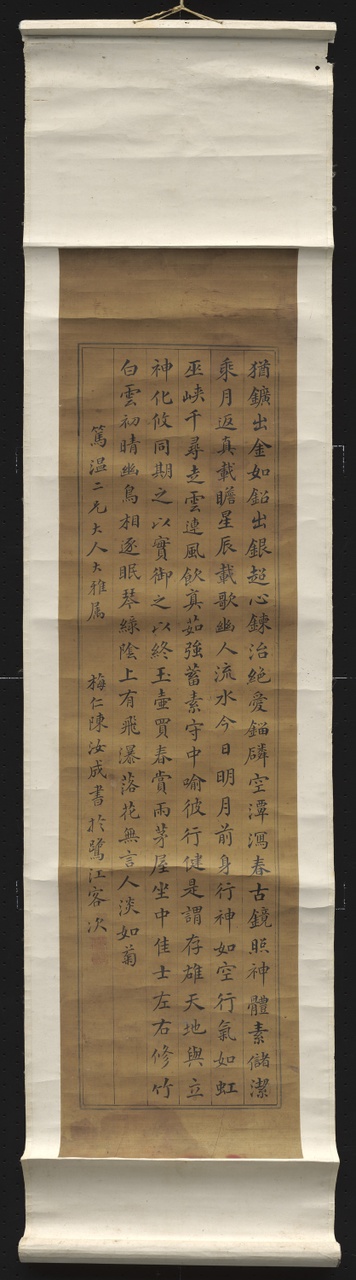 猶鑛出金如鉛出銀超心鍊冶絕愛錙磷空潭瀉春古鏡照神體素儲潔
乘月返真載瞻星辰載歌幽人流水今日明月前身行神如空行氣如虹
巫峽千尋走雲連風飲真茹強蓄素守中喻彼行健是謂存雄天地與立
神化攸同期之以實御之以終玉壺買春賞雨茅屋坐中佳士左右修竹
白雲初晴幽鳥相逐眠琴綠陰上有飛瀑落花無言人淡如菊
篤溫二兄大人大雅屬
梅仁陳汝成書於鷺江客次